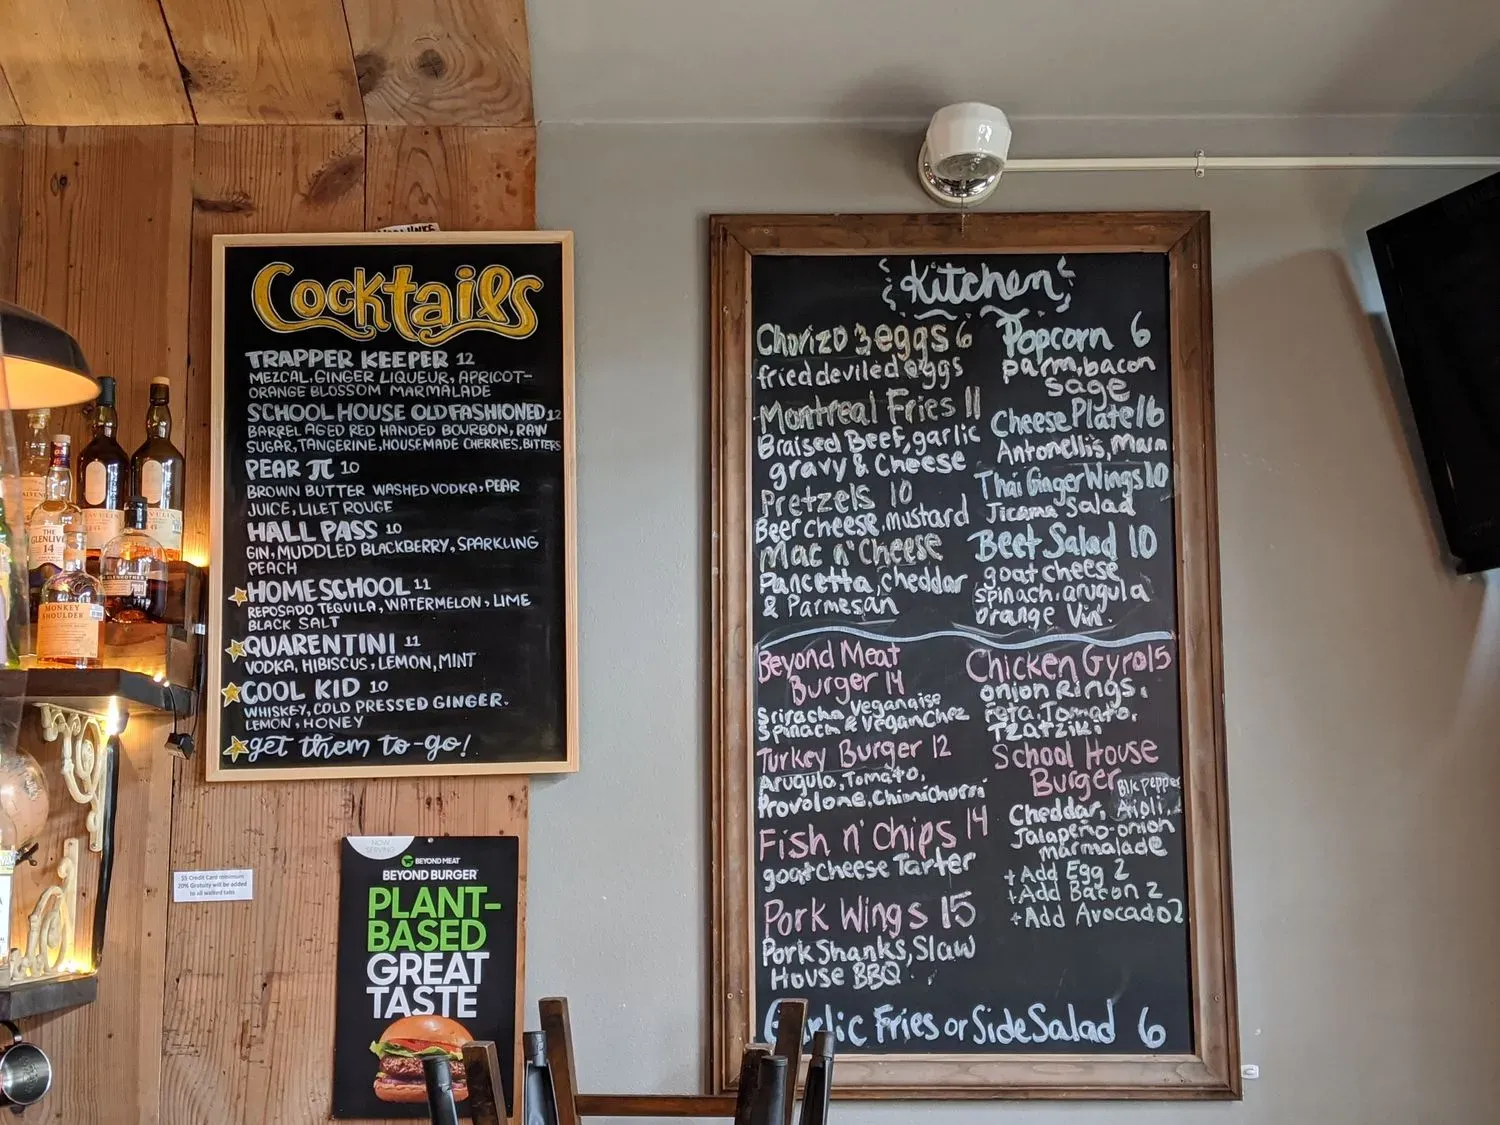 Cocktails
TRAPPER KEEPER 12
MEZCAL, GINGER LIQUEUR, APRICOT-
ORANGE BLOSSOM MARMALADE
SCHOOL HOUSE OLD FASHIONED 12
BARREL AGED RED HANDED BOURBON, RAW
SUGAR, TANGERINE, HOUSEMADE CHERRIES, BITTERS
PEAR π 10
BROWN BUTTER WASHED VODKA, PEAR
JUICE, LILET ROUGE
HALL PASS 10
GIN, MUDDLED BLACKBERRY, SPARKLING
PEACH
HOME SCHOOL 11
REPOSADO TEQUILA, WATERMELON, LIME
BLACK SALT
QUARENTINI 11
VODKA, HIBISCUS, LEMON, MINT
COOL KID 10
WHISKEY, COLD PRESSED GINGER.
LEMON, HONEY
get them to-go!
Kitchen
Chorizo 3 eggs 6
fried deviled eggs
Montreal Fries 11
Braised Beef, garlic
gravy & Cheese
Pretzels 10
Beer cheese, mustard
Mac n' Cheese
Pancetta, cheddar
& Parmesan
Popcorn 6
parm, bacon
sage
Cheese Plate 16
Antonellis, Marm
Thai Ginger Wings 10
Jicama Salad
Beet Salad 10
goat cheese
spinach, arugula
orange Vin.
Beyond Meat
Burger 14
Sriracha Veganaise
Spinach & Vegan Chez
Turkey Burger 12
Arugula, Tomato,
Provolone, Chimichurri
Fish n' Chips 14
goat cheese Tarter
Pork Wings 15
Pork Shanks, Slaw
House BBQ
Chicken Gyro 15
onion Rings,
Feta, Tomato,
Tzatziki
School House
Burger
Blk pepper
Cheddar, Aioli,
Jalapeño-onion
marmalade
+ Add Egg 2
+ Add Bacon 2
+ Add Avocado 2
Garlic Fries or Side Salad 6
NOW
SERVING
BEYOND MEAT
BEYOND BURGER
PLANT-
BASED
GREAT
TASTE
$5 Credit Card minimum
20% Gratuity will be added
to all walked tabs
THE
GLENLIV
14
MONKEY
SHOULDER